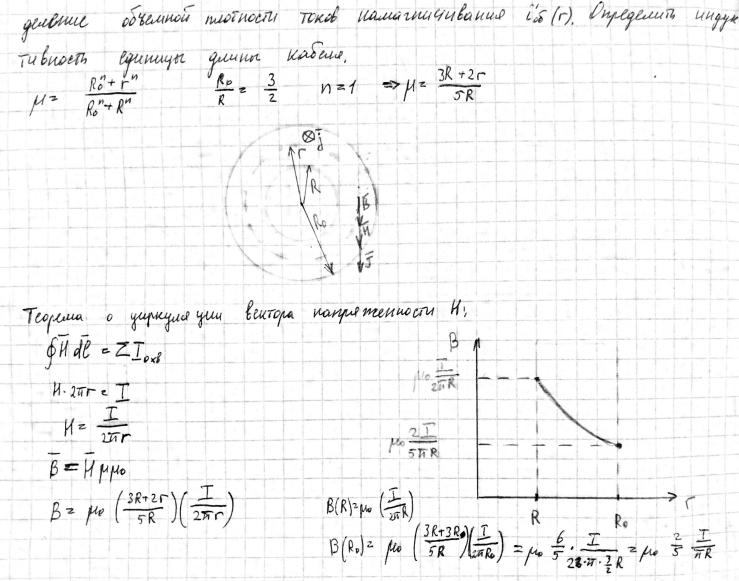 деление объемной плотности токов намагничивания i'об (r). Определить индук
тивность единицы длины кабеля.
μ = (R₀ⁿ + rⁿ)/(R₀ⁿ + Rⁿ) R₀/R = 3/2 n = 1 ⇒ μ = (3R + 2r)/5R
⊗ j̄
r
R
R₀
B̄
H̄
J̄
Теорема о циркуляции вектора напряженности H:
∮H̄ dl̄ = ΣI охв
H · 2πr = I
H = I/2πr
B̄ = H̄ μμ₀
B = μ₀ ((3R + 2r)/5R)(I/2πr)
B
μ₀ I/2πR
μ₀ 2I/5πR
R R₀ r
B(R) = μ₀ (I/2πR)
B(R₀) = μ₀ ((3R + 3R)/5R)(I/2πR₀) = μ₀ 6/5 · I/(2 · π · 3/2 R) = μ₀ 2/5 I/πR